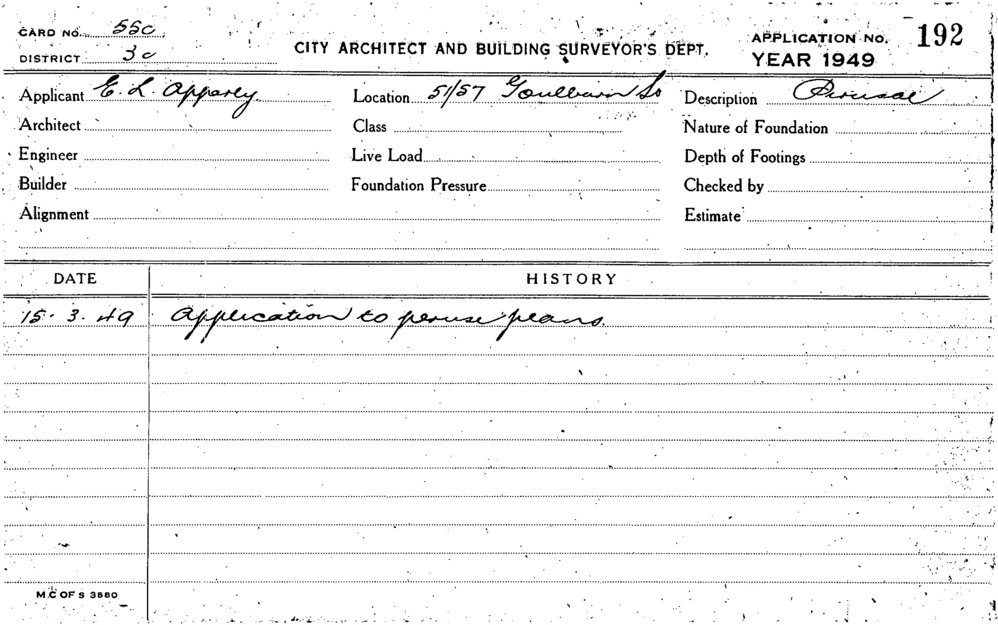 CARD NO. 55c
DISTRICT 3c
CITY ARCHITECT AND BUILDING SURVEYOR'S DEPT.
APPLICATION NO. 192
YEAR 1949
Applicant E. L. Apperly Location 51/57 Goulburn St Description Perusal
Architect Class Nature of Foundation
Engineer Live Load Depth of Footings
Builder Foundation Pressure Checked by
Alignment Estimate
DATE HISTORY
15. 3. 49 Application to peruse plans.
M.C OF S 3580